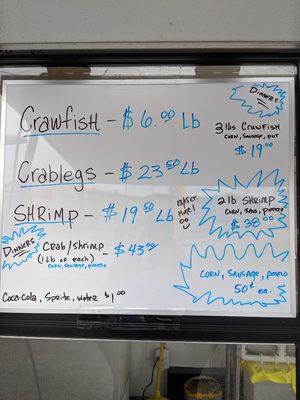 Crawfish - $6.00 Lb
DINNERS
3 lbs Crawfish
CORN, SAUSAGE, POT
$19.00
Crablegs - $23 50 Lb
SHRIMP - $19 50 Lb
2 lb Shrimp
CORN, SAUS, POTATO
$38.00
DINNERS
Crab/shrimp - $43.00
(1 Lb of each)
CORN, SAUSAGE, POTATO
CORN, SAUSAGE, POTATO
50¢ ea.
Coca-Cola, Sprite, water $1.00